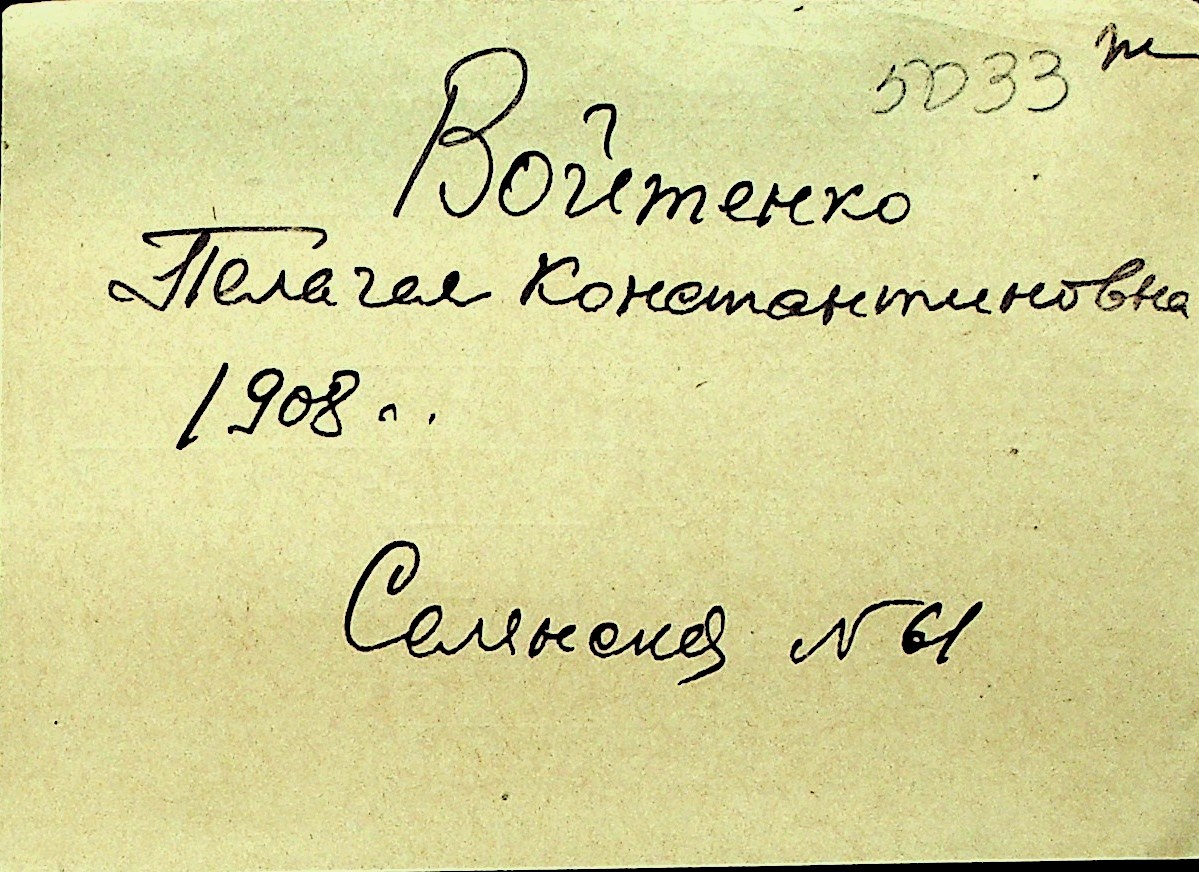 5033
Войтенко
Пелагея Константиновна
1908
Селянская № 61